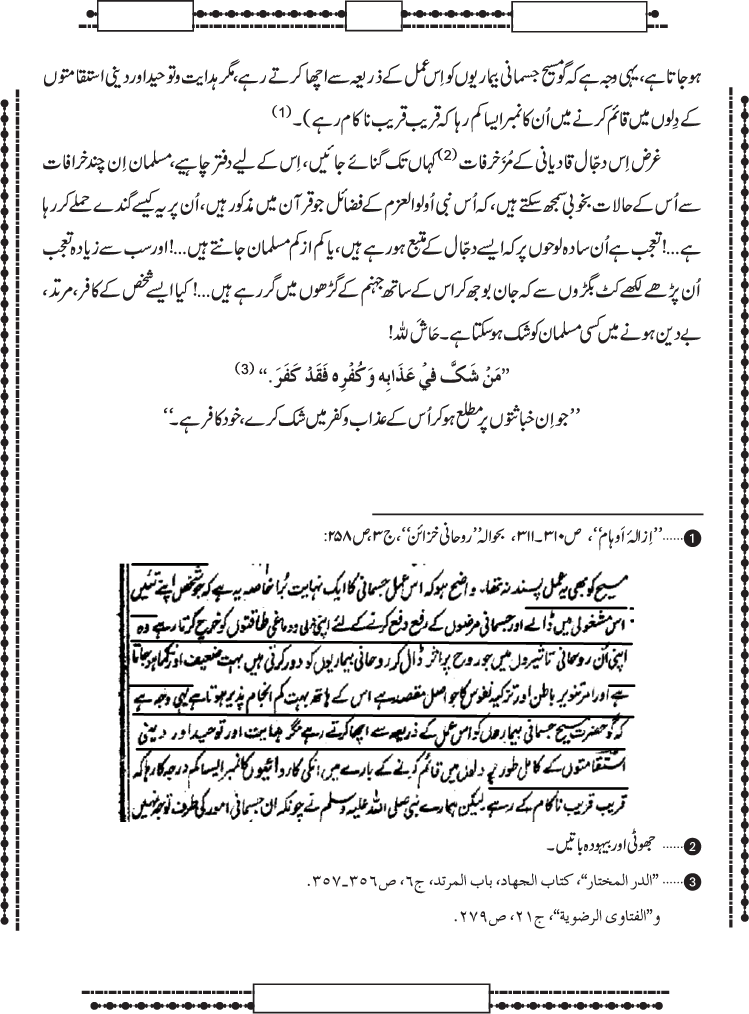 ہوجاتا ہے، یہی وجہ ہے کہ گو مسیح جسمانی بیماریوں کو اِس عمل کے ذریعہ سے اچھا کرتے رہے، مگر ہدایت و توحید اور دینی استقامتوں
کے دِلوں میں قائم کرنے میں اُن کا نمبر ایسا کم رہا کہ قریب قریب ناکام رہے)۔ (1)
غرض اِس دجّال قادیانی کے مُزخرفات (2) کہاں تک گنائے جائیں، اِس کے لیے دفتر چاہیے، مسلمان اِن چند خرافات
سے اُس کے حالات بخوبی سمجھ سکتے ہیں، کہ اُس نبی اُولو العزم کے فضائل جو قرآن میں مذکور ہیں، اُن پر یہ کیسے گندے حملے کر رہا
ہے...! تعجب ہے اُن سادہ لوحوں پر کہ ایسے دجّال کے متبع ہو رہے ہیں، یا کم از کم مسلمان جانتے ہیں...! اور سب سے زیادہ تعجب
اُن پڑھے لکھے کٹ بگڑوں سے کہ جان بوجھ کر اس کے ساتھ جہنم کے گڑھوں میں گر رہے ہیں...! کیا ایسے شخص کے کافر، مرتد،
بے دین ہونے میں کسی مسلمان کو شک ہوسکتا ہے۔ حَاشَ للہ!
”مَنْ شَكَّ فِيْ عَذَابِه وَكُفْرِه فَقَدْ كَفَرَ.“ (3)
’’جو اِن خباثتوں پر مطلع ہو کر اُس کے عذاب و کفر میں شک کرے، خود کافر ہے۔‘‘
1 ...... ’’اِزالۂ اَوہام‘‘، ص۳۱۰۔۳۱۱، بحوالہ ’’روحانی خزائن‘‘، ج۳، ص۲۵۸:
مسیح کو بھی یہ عمل پسند نہ تھا۔ واضح ہو کہ اس عمل جسمانی کا ایک نہایت بُرا خاصہ یہ ہے کہ جو شخص اپنے تئیں
اس مشغولی میں ڈالے اور جسمانی مرضوں کے رفع دفع کرنے کے لئے اپنی دلی و دماغی طاقتوں کو خرچ کرتا رہے وہ
اپنی اُن روحانی تاثیروں میں جو روح پر اثر ڈال کر روحانی بیماریوں کو دور کرتی ہیں بہت ضعیف اور نکما ہو جاتا
ہے اور امر تنویر باطن اور تزکیہ نفوس کا جو اصل مقصد ہے اس کے ہاتھ سے بہت کم انجام پذیر ہوتا ہے یہی وجہ ہے
کہ گو حضرت مسیح جسمانی بیماروں کو اس عمل کے ذریعہ سے اچھا کرتے رہے مگر ہدایت اور توحید اور دینی
استقامتوں کے کامل طور پر دلوں میں قائم کرنے کے بارے میں انکی کارروائیوں کا نمبر ایسا کم درجہ کا رہا کہ
قریب قریب ناکام کے رہے لیکن ہمارے نبی صلی اللہ علیہ وسلم نے چونکہ ان جسمانی امور کی طرف توجہ نہیں
2 ...... جھوٹی اور بیہودہ باتیں۔
3 ...... ”الدر المختار“، كتاب الجهاد، باب المرتد، ج٦، ص٣٥٦-٣٥٧.
و”الفتاوى الرضوية“، ج٢١، ص٢٧٩.